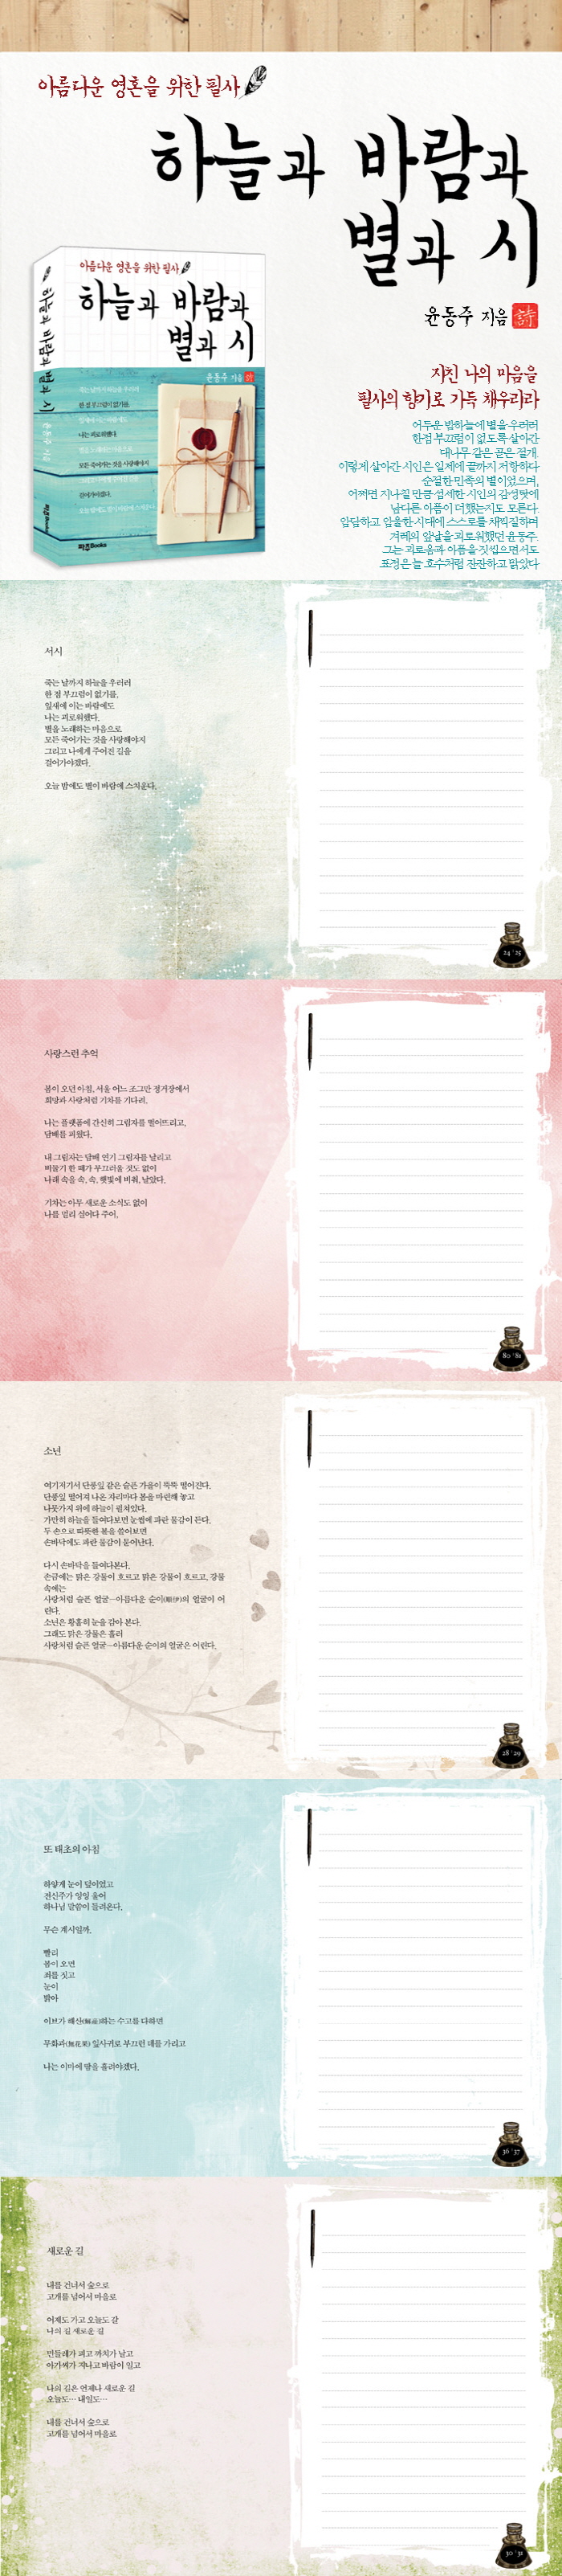 아름다운 영혼을 위한 필사
하늘과 바람과
별과 시
윤동주 지음 詩
아름다운 영혼을 위한 필사
하늘과 바람과
별과 시
윤동주 지음 詩
하늘과 바람과 별과 시
윤동주 지음
죽는 날까지 하늘을 우러러
한 점 부끄럼이 없기를,
잎새에 이는 바람에도
나는 괴로워했다.
별을 노래하는 마음으로
모든 죽어가는 것을 사랑해야지
걸어가야겠다.
오늘 밤에도 별이 바람에 스치운다.
파주Books
파주Books
지친 나의 마음을
필사의 향기로 가득 채우리라
어두운 밤하늘에 별을 우러러
한점 부끄럼이 없도록 살아간
대나무 같은 곧은 절개.
이렇게 살아간 시인은 일제에 끝까지 저항하다
순절한 민족의 별이었으며,
어쩌면 지나칠 만큼 섬세한 시인의 감성탓에
남다른 아픔이 더했는지도 모른다.
암담하고 암울한 시대에 스스로를 채찍질하며
겨레의 앞날을 괴로워했던 윤동주.
그는 괴로움과 아픔을 짓씹으면서도
표정은 늘 호수처럼 잔잔하고 맑았다
서시
죽는 날까지 하늘을 우러러
한 점 부끄럼이 없기를,
잎새에 이는 바람에도
나는 괴로워했다.
별을 노래하는 마음으로
모든 죽어가는 것을 사랑해야지
그리고 나에게 주어진 길을
걸어가야겠다.
오늘 밤에도 별이 바람에 스치운다.
24 · 25
사랑스런 추억
봄이 오던 아침, 서울 어느 조그만 정거장에서
희망과 사랑처럼 기차를 기다려,
나는 플랫폼에 간신히 그림자를 떨어뜨리고,
담배를 피웠다.
내 그림자는 담배 연기 그림자를 날리고
비둘기 한 떼가 부끄러울 것도 없이
나래 속을 속, 속, 햇빛에 비춰, 날았다.
기차는 아무 새로운 소식도 없이
나를 멀리 실어다 주어,
80 · 81
소년
여기저기서 단풍잎 같은 슬픈 가을이 뚝뚝 떨어진다.
단풍잎 떨어져 나온 자리마다 봄을 마련해 놓고
나뭇가지 위에 하늘이 펼쳐있다.
가만히 하늘을 들여다보면 눈썹에 파란 물감이 든다.
두 손으로 따뜻한 볼을 쓸어보면
손바닥에도 파란 물감이 묻어난다.
다시 손바닥을 들여다본다.
손금에는 맑은 강물이 흐르고 맑은 강물이 흐르고, 강물
속에는
사랑처럼 슬픈 얼굴—아름다운 순이(順伊)의 얼굴이 어
린다.
소년은 황홀히 눈을 감아 본다.
그래도 맑은 강물은 흘러
사랑처럼 슬픈 얼굴—아름다운 순이의 얼굴은 어린다.
28 · 29
또 태초의 아침
하얗게 눈이 덮이었고
전신주가 잉잉 울어
하나님 말씀이 들려온다.
무슨 계시일까.
빨리
봄이 오면
죄를 짓고
눈이
밝아
이브가 해산(解産)하는 수고를 다하면
무화과(無花果) 잎사귀로 부끄런 데를 가리고
나는 이마에 땀을 흘려야겠다.
36 · 37
새로운 길
내를 건너서 숲으로
고개를 넘어서 마을로
어제도 가고 오늘도 갈
나의 길 새로운 길
민들레가 피고 까치가 날고
아가씨가 지나고 바람이 일고
나의 길은 언제나 새로운 길
오늘도… 내일도…
내를 건너서 숲으로
고개를 넘어서 마을로
30 · 31